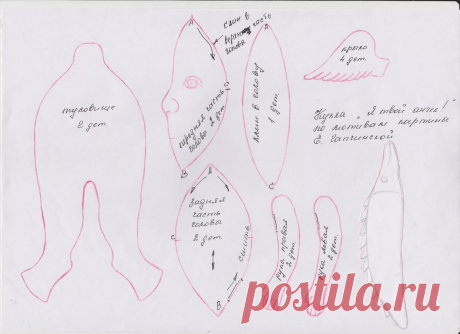 туловище
2 дет.
А
клин в
верхнюю часть
головы
передняя часть
головы 2 дет.
В
С
А
клин в голову
1 дет.
С
крыло
4 дет.
Кукла „Я твой ангел!"
по мотивам картины
Е. Гапчинской
А
задняя
часть
головы
2 дет.
С
В
сшить
рука правая
2 дет.
рука левая
2 дет.
postila.ru